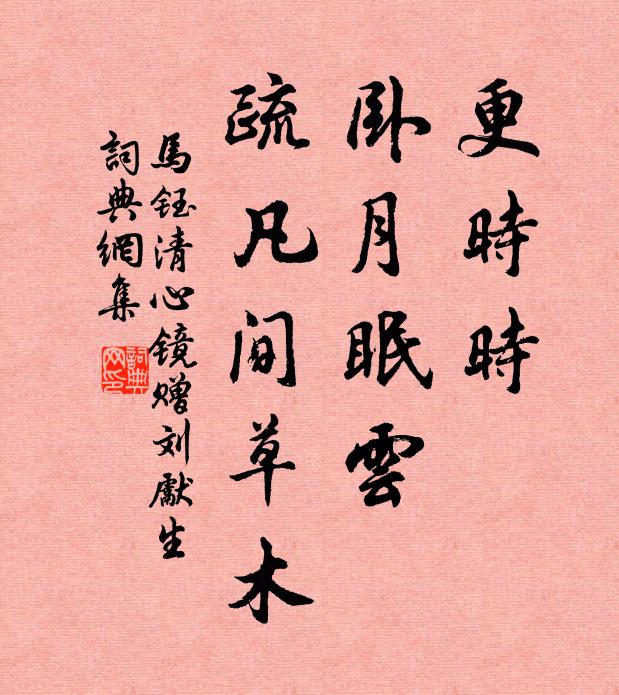 更時時
卧月眠雲
疏凡間草木
馬鈺清心镜赠刘獻生
詞典網集
詞典网印